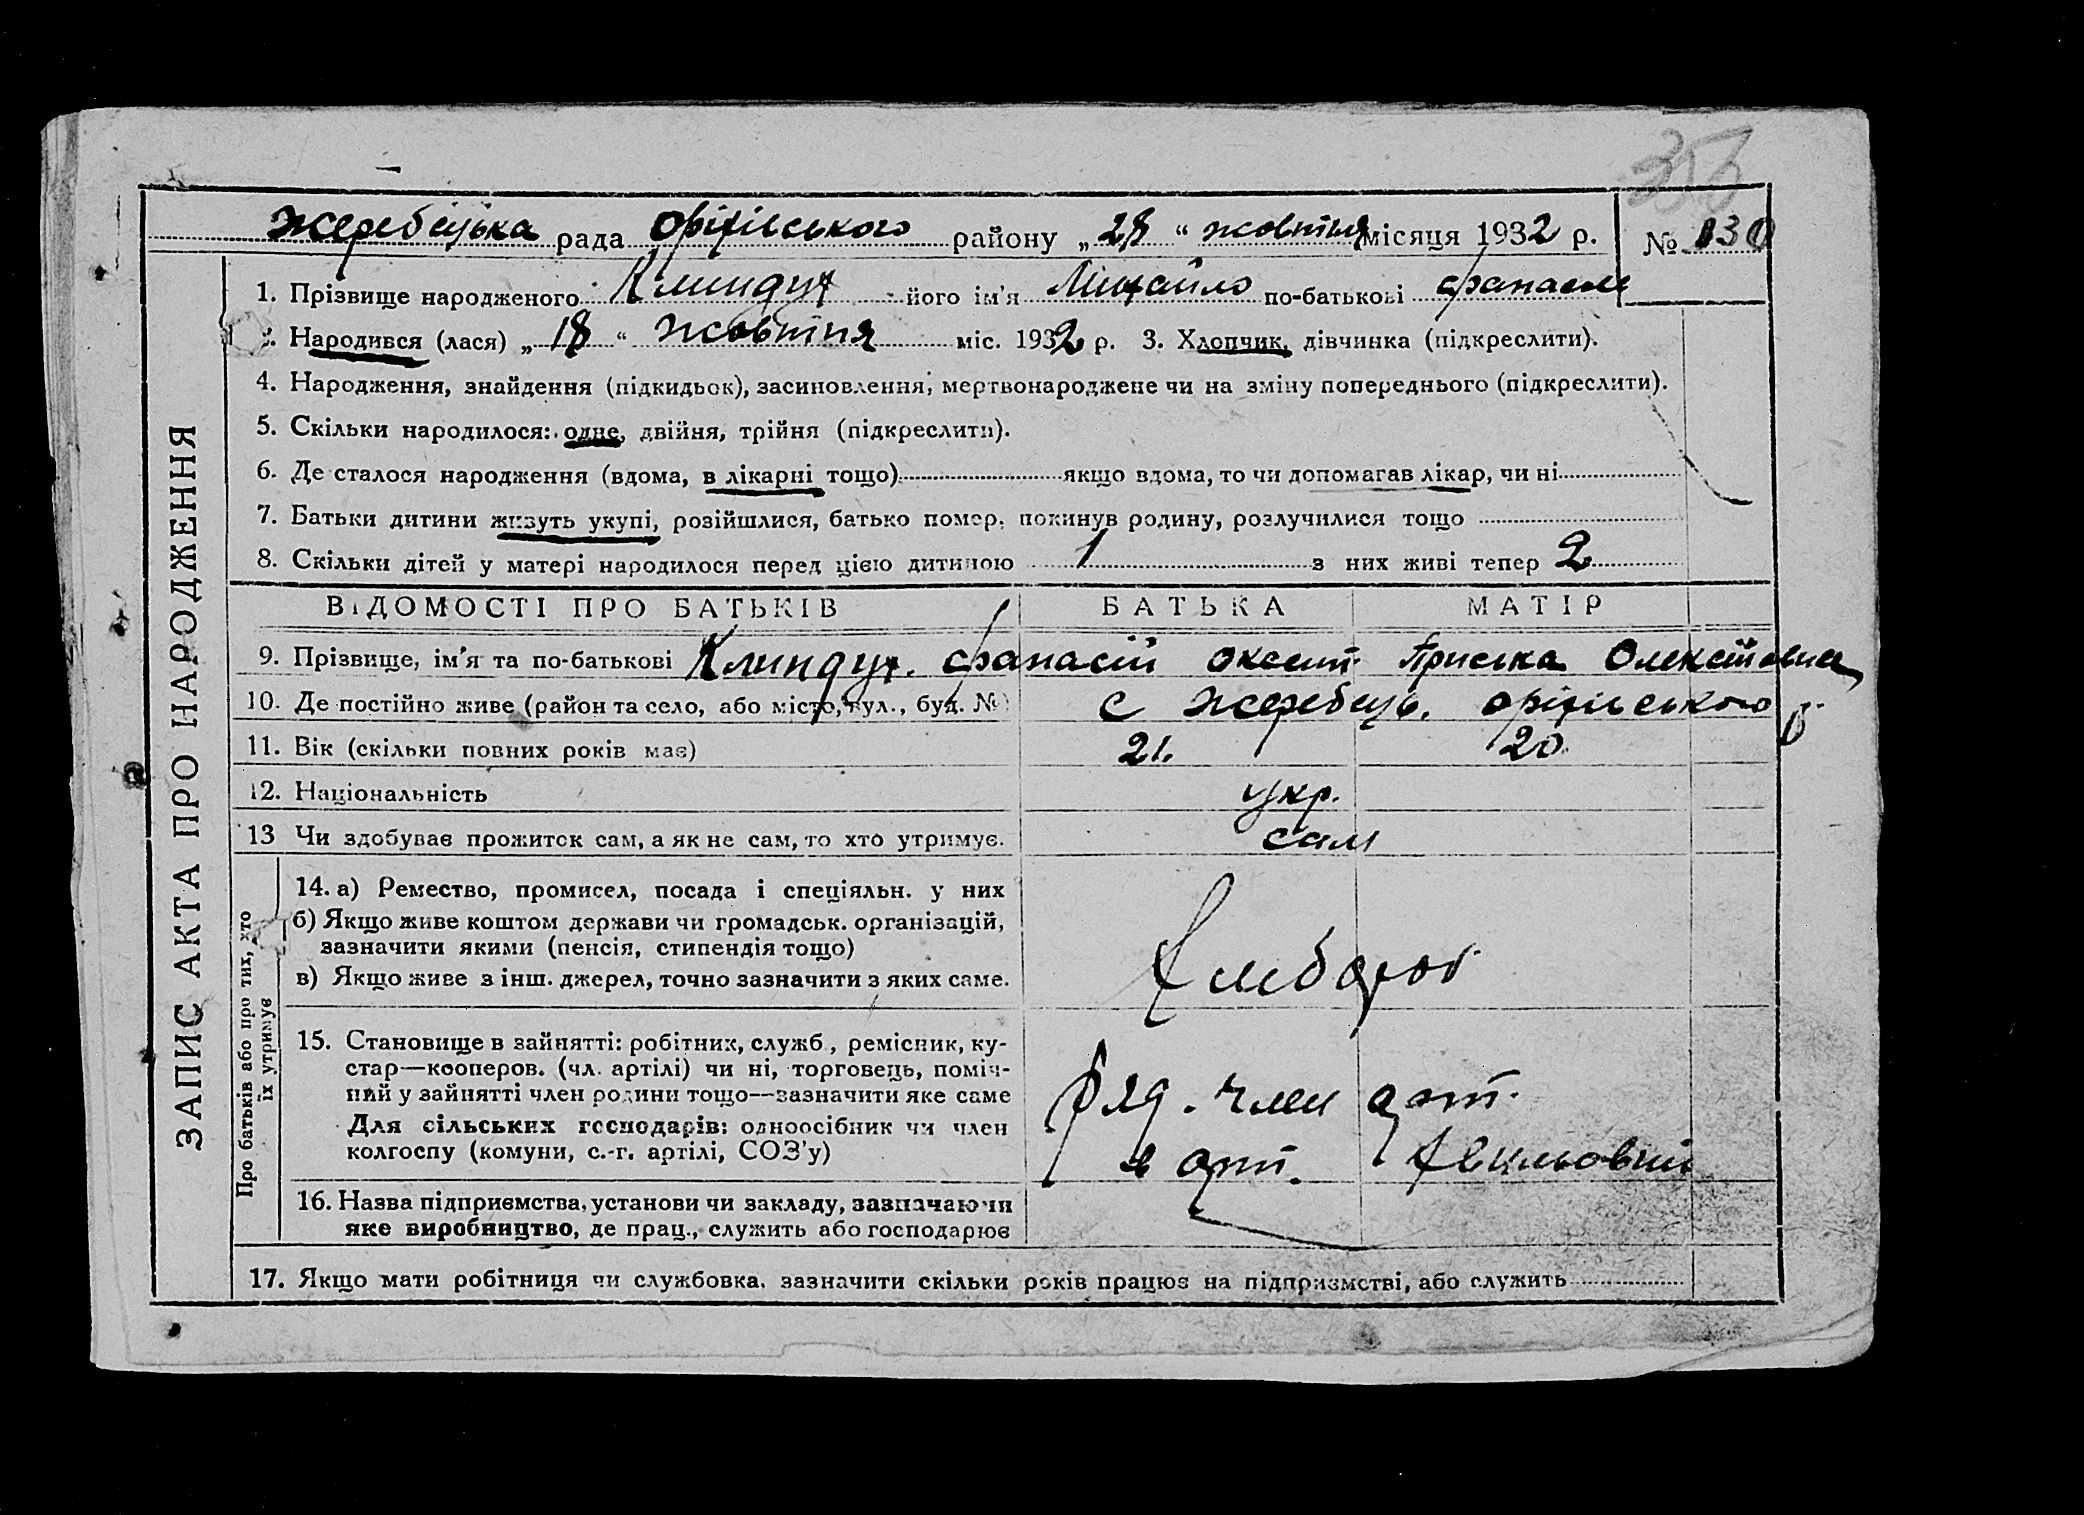 353
Жеребецька рада Оріхівського району „28“ жовтня місяця 1932 р. № 130
1. Прізвище народженого Клиндух його ім'я Михайло по-батькові Фанасов
2. Народився (лася) „18“ жовтня міс. 1932 р. 3. Хлопчик, дівчинка (підкреслити).
4. Народження, знайдення (підкидьок), засиновлення, мертвонароджене чи на зміну попереднього (підкреслити).
5. Скільки народилося: одне, двійня, трійня (підкреслити).
6. Де сталося народження (вдома, в лікарні тощо) якщо вдома, то чи допомагав лікар, чи ні
7. Батьки дитини живуть укупі, розійшлися, батько помер, покинув родину, розлучилися тощо
8. Скільки дітей у матері народилося перед цією дитиною 1 з них живі тепер 2
ВІДОМОСТІ ПРО БАТЬКІВ БАТЬКА МАТІР
9. Прізвище, ім'я та по-батькові Клиндух. Фанасій Оксент. Приська Олексіївна
10. Де постійно живе (район та село, або місто, вул., буд. №) С Жеребець. Оріхівського р.
11. Вік (скільки повних років має) 21. 20.
12. Національність укр.
13 Чи здобуває прожиток сам, а як не сам, то хто утримує. сам
14. а) Ремество, промисел, посада і спеціяльн. у них
б) Якщо живе коштом держави чи громадськ. організацій,
зазначити якими (пенсія, стипендія тощо)
в) Якщо живе з інш. джерел, точно зазначити з яких саме.
Хлібороб
15. Становище в зайнятті: робітник, служб., ремісник, ку-
стар—кооперов. (чл. артілі) чи ні, торговець, поміч-
ний у зайнятті член родини тощо—зазначити яке саме
Для сільських господарів: одноосібник чи член
колгоспу (комуни, с.-г. артілі, СОЗ'у)
Ряд. член арт.
в арт.
16. Назва підприємства, установи чи закладу, зазначаючи
яке виробництво, де прац., служить або господарює
17. Якщо мати робітниця чи службовка, зазначити скільки років працює на підприємстві, або служить
ЗАПИС АКТА ПРО НАРОДЖЕННЯ
Про батьків або про тих, хто
їх утримує